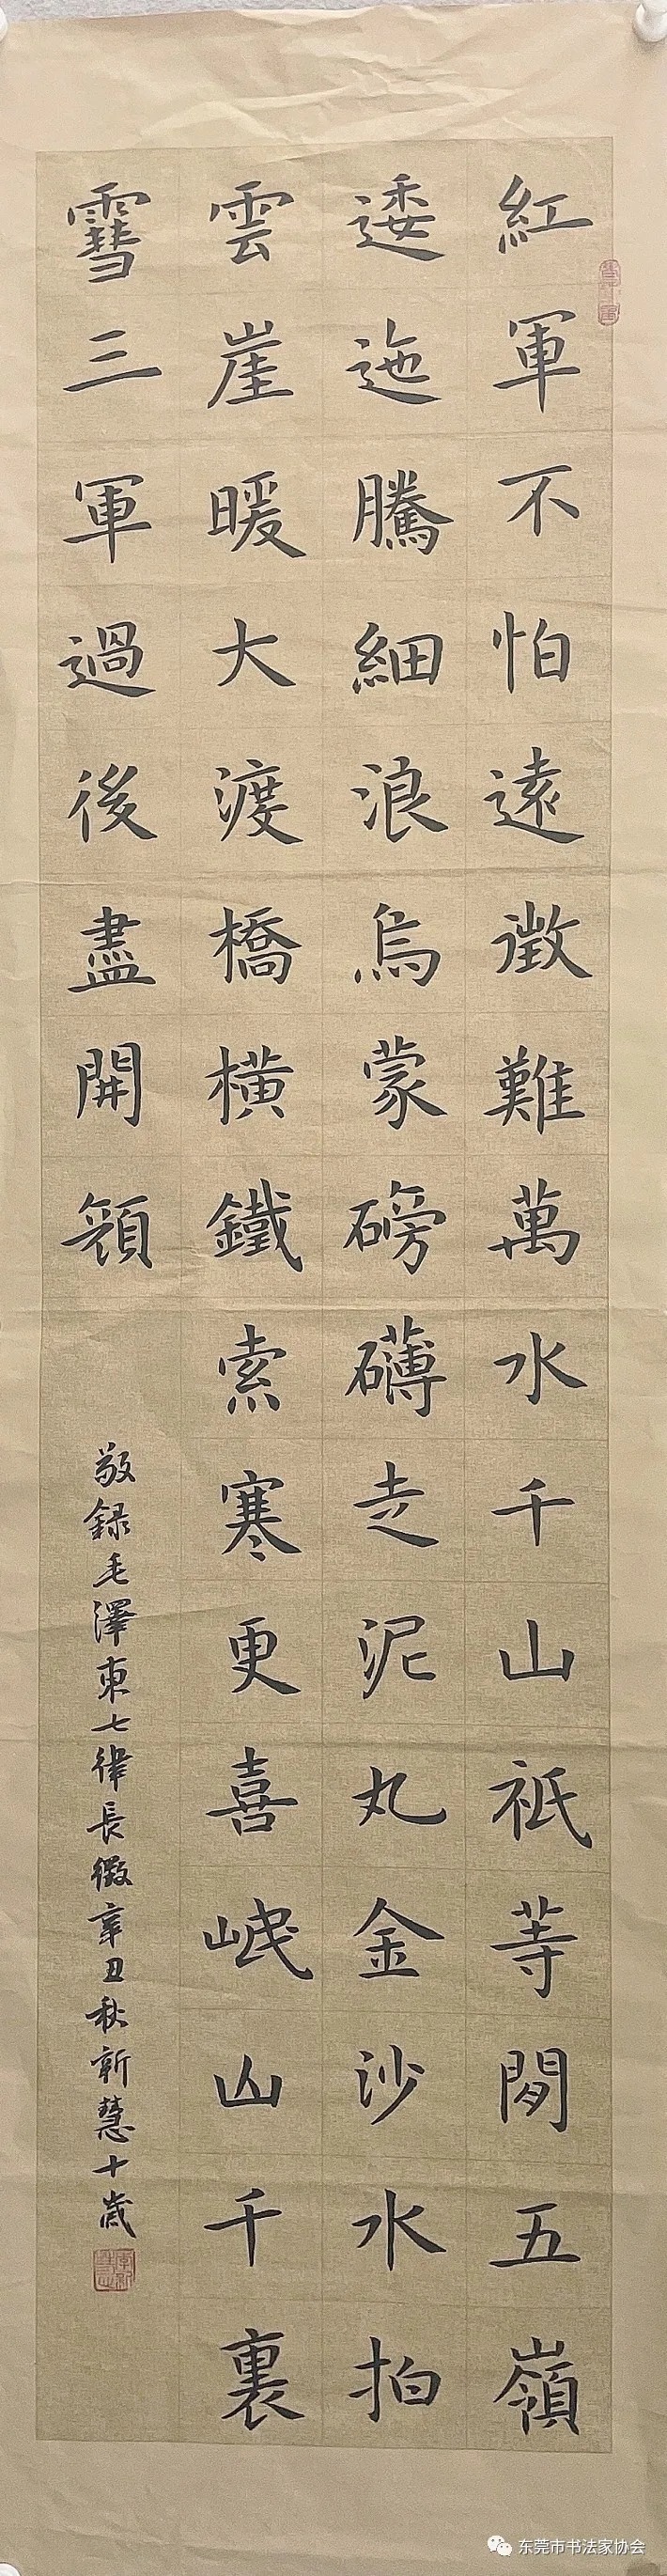 紅軍不怕遠徵難萬水千山祇荨間五嶺
逶迤騰細浪烏蒙磅礴走泥丸金沙水拍
雲崖暖大渡橋橫鐵索寒更喜岷山千裏
雪三軍過後盡開顔
敬録毛澤東七律長徵辛丑秋新慧十歲
东莞市书法家协会